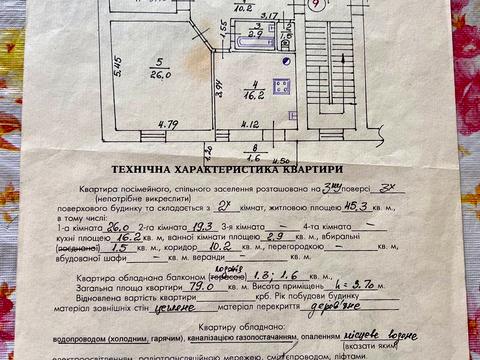 10.2
3.17
9
1.55
3
2.9
5.45
5
26.0
3.94
4
16.2
4.79
4.12
1.20
8
1.6
4.50
ТЕХНІЧНА ХАРАКТЕРИСТИКА КВАРТИРИ
Квартира посімейного, спільного заселення розташована на 3му поверсі 3х
(непотрібне викреслити)
поверхового будинку та складається з 2х кімнат, житловою площею 45,3 кв. м.,
в тому числі:
1-а кімната 26.0 2-га кімната 19.3 3-я кімната – 4-та кімната –
кухні площею 16.2 кв. м, ванної кімнати площею 2.9 кв. м., вбиральні
(поєднаної) 1.5 кв. м., коридор 10.2 кв. м., перегородкою – кв. м.,
вбудованої шафи – кв. м. веранди – кв. м.
Квартира обладнана балконом (терасою) 1.3; 1.6 кв. м.,
Загальна площа квартири 79.0 кв. м. Висота приміщень h = 3.70 м.
Відновлена вартість квартири крб. Рік побудови будинку
матеріал зовнішніх стін цегляне матеріал перекриття дерев'яне
Квартиру обладнано:
водопроводом (холодним, гарячим), каналізацією газопостачанням, опаленням місцеве водяне
(вказати яким)
електроосвітленням, радіотрансляційною мережею, сміттєпроводом, ліфтами.